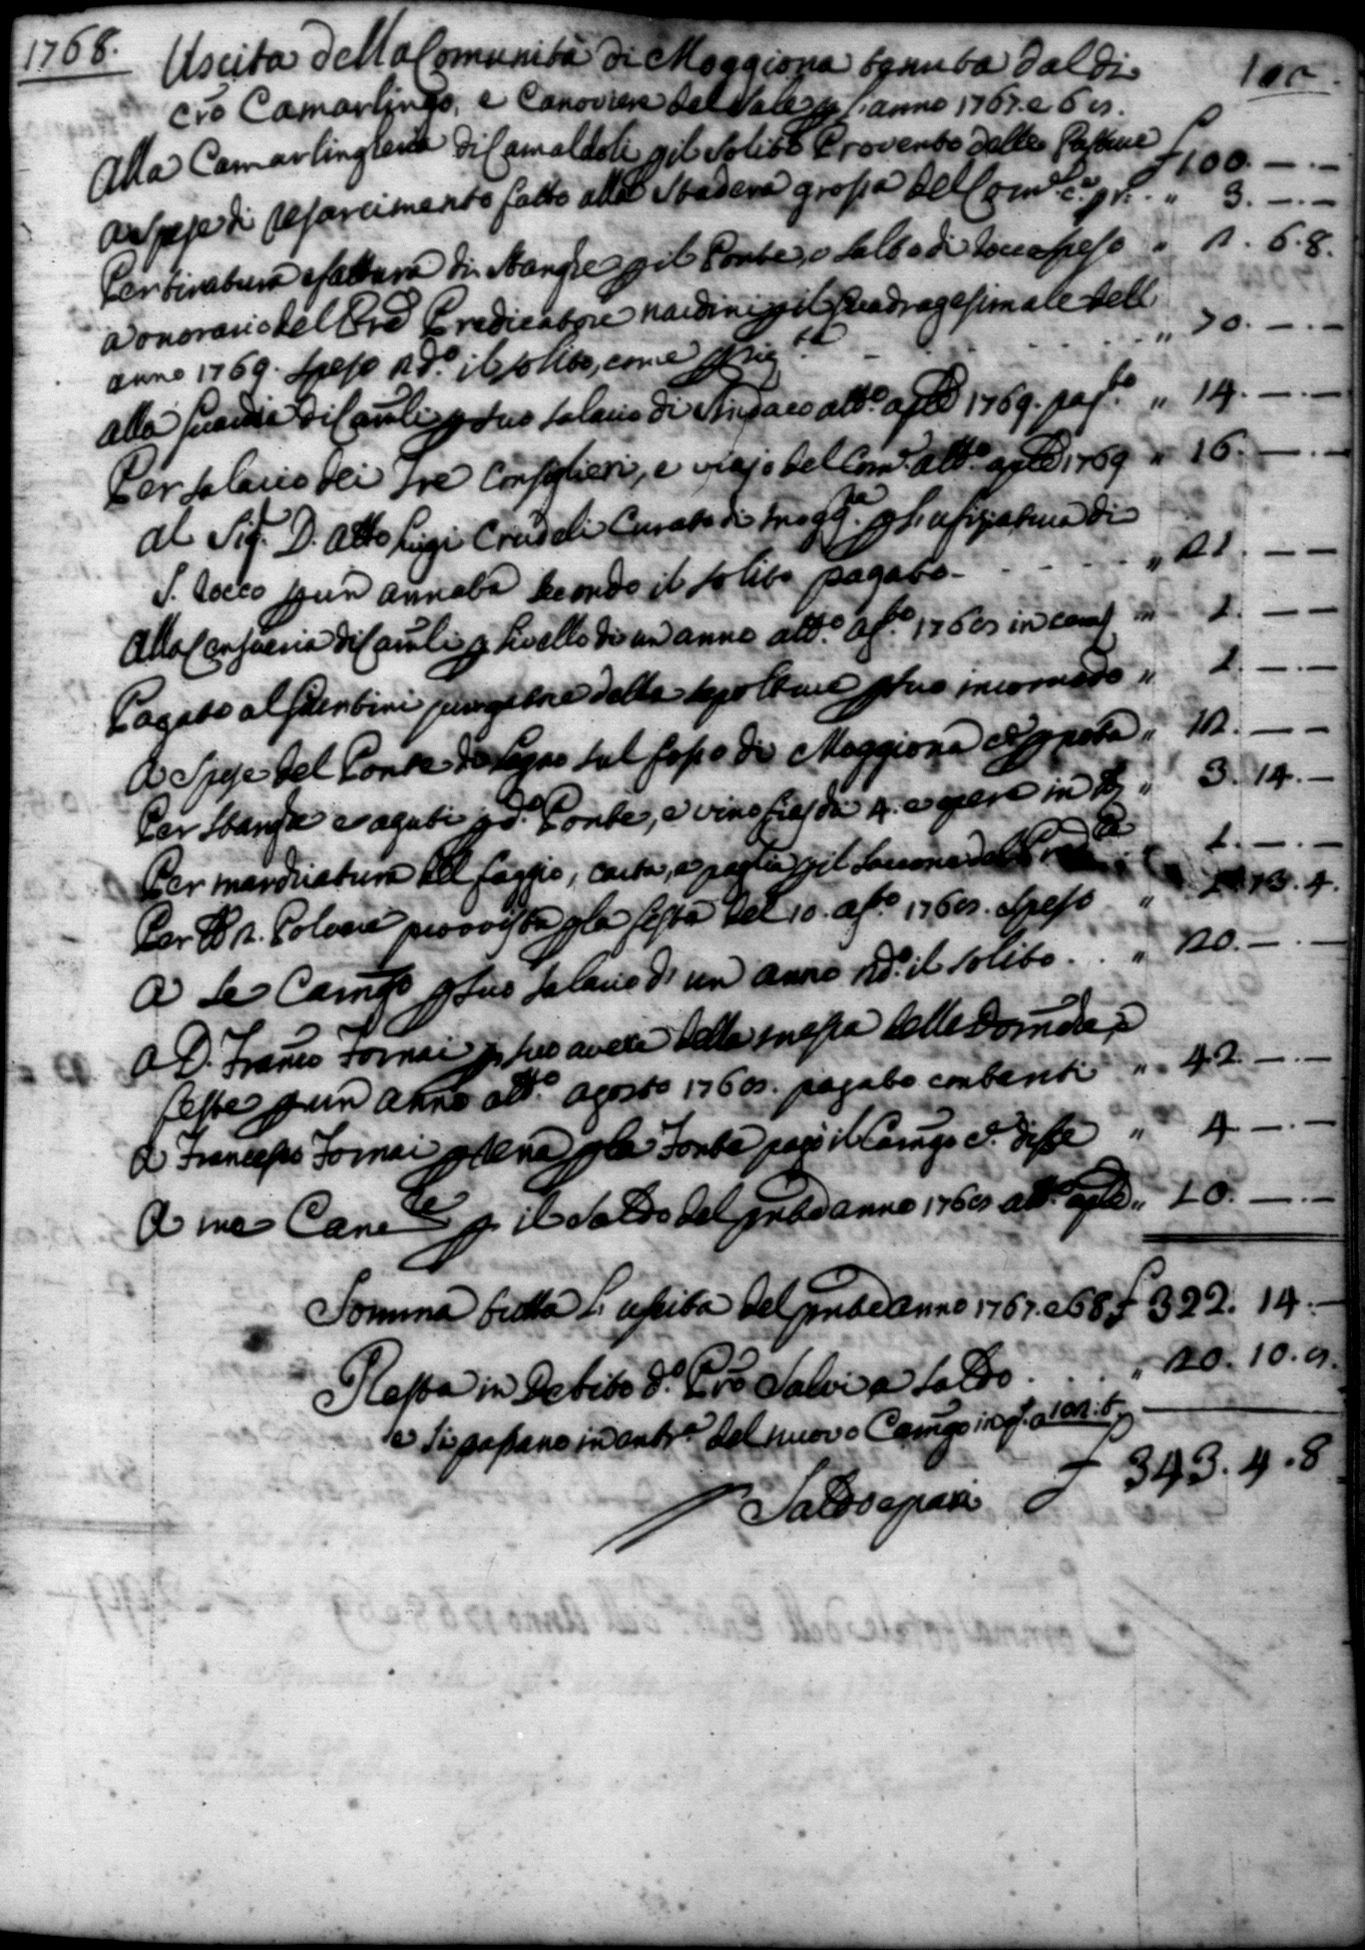 1768.
Uscita della Comunità di Moggiona tenuta dal di
cro Camarlingo, e Canoviere del Sale p l'anno 1767. e 68.
Alla Camarlingheria di Camaldoli p il solito Provento delle Pasture £ 100. — . —
a Spese di resarcimento fatto alla Stadera grossa del Com.e " 3. — . —
Per tiratura e fattura di Stanghe p il Ponte, e salto di Rocca speso " 2. 6. 8.
a onorario del Pre Predicatore Nardini p il Quadragesimale dell
anno 1769. speso 2do. il solito, come " 70. — . —
alla Guardia di Cauli p suo salario di Sindaco att.o aple 1769. pag.to " 14. — . —
Per salario dei tre Consiglieri, e viajo del Com.e att.o aple 1769 " 16. — . —
al Sig. D. Atto Luigi Crudeli Curato di Mogg.na p l'ufiziatura di
S. Rocco p un annata secondo il solito pagato " 21. — . —
alla di Cauli p livello di un anno att.o ag.to 1768 in " 1. — . —
Pagato al Gientini purgatore delle sepolture p suo incomodo " 1. — . —
a Spese del Ponte di Legno sul fosso di Moggiona " 12. — . —
Per Stanghe e aguti p d.o Ponte, e vino fiaschi 4. e opere in " 3. 14. —
Per mardiatura del faggio, carta, e paglia p il saccone del " 1. — . —
Per lb 2. Polvere provvista p la festa del 10. ag.to 1768. speso " 1. 13. 4.
a Se Camgo p suo salario di un anno 2do. il solito " 20. — . —
a D. Franco Fornai p suo avere della messa delle Domeniche, e
feste p un anno att.o agosto 1768. pagato contanti " 42. — . —
a Francesco Fornai p la Fonte pagò il Camgo " 4 — . —
a me Cane p il Saldo del pnte anno 1768 att.o aple " 10. — . —
Somma tutta l'uscita del pnte anno 1767. e 68 £ 322. 14. —
Resta in Debito d.o Pro Salvi a saldo " 20. 10. 8.
e si passano in entr.a del nuovo Camgo in q.o a 102. t.
Saldo e pari £ 343. 4. 8